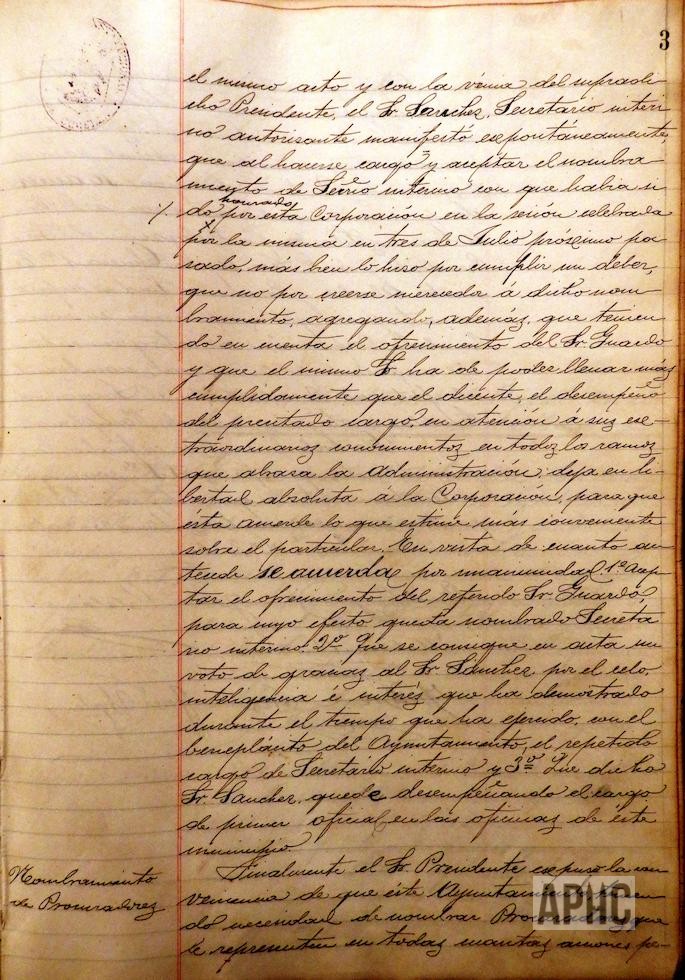 3
el mismo acto y con la vénia del supradi-
cho Presidente, el Sr. Sanchez, Secretario interi
no autorizante manifestó espontáneamente,
que al hacerse cargo y aceptar el nombra-
miento de Secrio interino con que habia si
honrado
do por esta Corporación en la sesión celebrada
por la misma en tres de Julio próximo pa-
sado, más bien lo hizo por cumplir un deber,
que no por creerse merecedor á dicho nom-
bramiento, agregando, además, que tenien-
do en cuenta el ofrecimiento del Sr. Guardo
y que el mismo Sr. ha de poder llenar más
cumplidamente que el dicente, el desempeño
del precitado cargo, en atención á sus ex-
traordinarios conocimientos en todos los ramos
que abraza la Administración; deja en li-
bertad absoluta á la Corporación, para que
ésta acuerde lo que estime más conveniente
sobre el particular. En vista de cuanto an
tecede se acuerda por unanimidad 1.º Acep-
tar el ofrecimiento del referido Sr. Guardó,
para cuyo efecto queda nombrado Secreta
rio interino. 2.º Que se consigne en acta un
voto de gracias al Sr. Sánchez, por el celo,
inteligencia é interés que ha demostrado
durante el tiempo que ha ejercido, con el
beneplácito del Ayuntamiento, el repetido
cargo de Secretario interino y 3.º Que dicho
Sr. Sanchez, quede desempeñando el cargo
de primer oficial en las oficinas de este
municipio.
Nombramiento
de Procuradores
Finalmente el Sr. Presidente expuso la con
veniencia de que éste Ayuntamiento
do necesidad de nombrar Procuradores que
le representen en todas cuantas acciones pe-
APHC